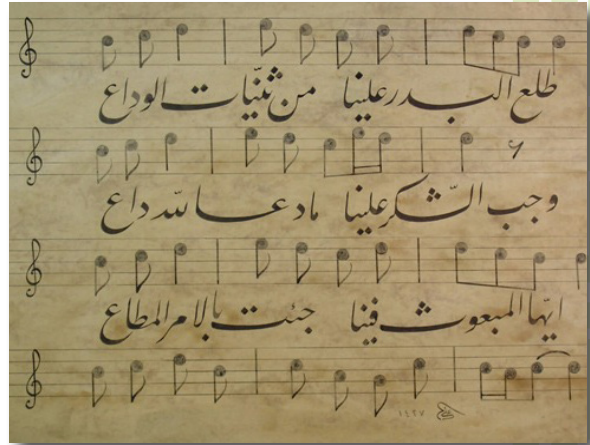 طلع البدر علينا من ثنيّات الوداع
وجب الشّكر علينا ما دعا لله داع
ايّها المبعوث فينا جئت بالامر المطاع
١٤٢٧